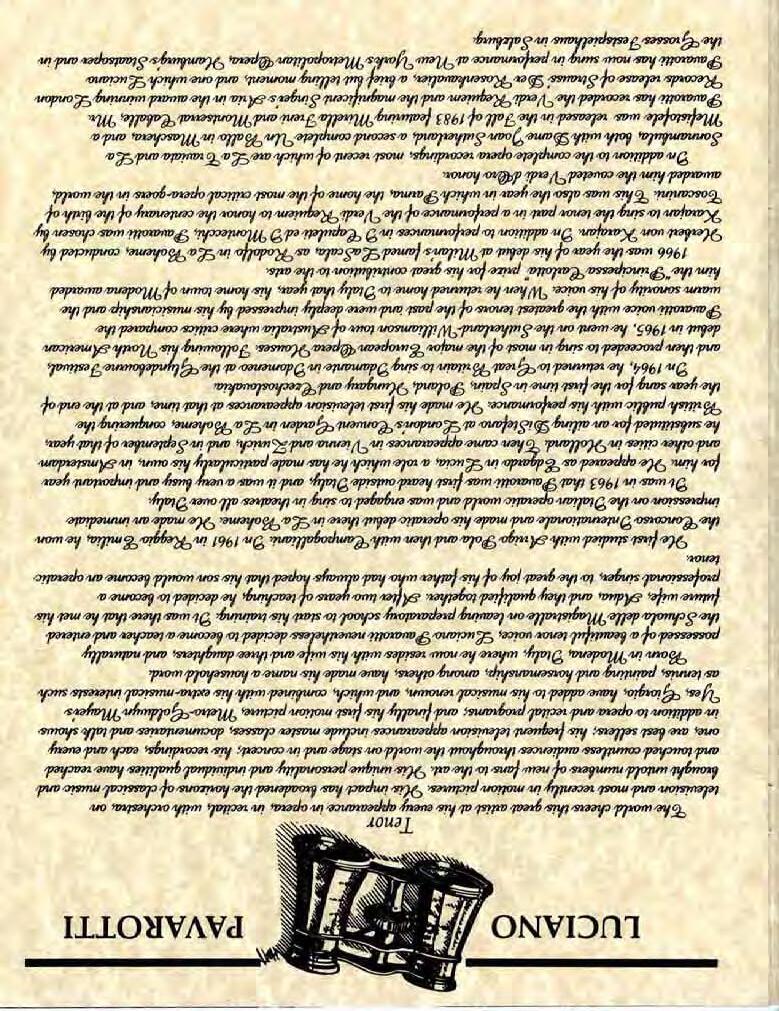 LUCIANO PAVAROTTI
Tenor
The world cheers this great artist at his every appearance in opera, in recital, with orchestra, on
television and most recently in motion pictures. His impact has broadened the horizons of classical music and
brought untold numbers of new fans to the art. His unique personality and individual qualities have reached
and touched countless audiences throughout the world on stage and in concert; his recordings, each and every
one, are best sellers; his frequent television appearances include master classes, documentaries and talk shows
in addition to opera and recital programs; and finally his first motion picture, Metro-Goldwyn Mayer's
Yes, Giorgio, have added to his musical renown and which, combined with his extra-musical interests such
as tennis, painting and horsemanship, among others, have made his name a household word.
Born in Modena, Italy, where he now resides with his wife and three daughters, and naturally
possessed of a beautiful tenor voice, Luciano Pavarotti nevertheless decided to become a teacher and entered
the Schuola delle Magistralle on leaving preparatory school to start his training. It was there that he met his
future wife, Adua, and they qualified together. After two years of teaching, he decided to become a
professional singer, to the great joy of his father who had always hoped that his son would become an operatic
tenor.
He first studied with Arrigo Pola and then with Campogalliani. In 1961 in Reggio Emilia, he won
the Concorso Internationale and made his operatic debut there in La Boheme. He made an immediate
impression on the Italian operatic world and was engaged to sing in theatres all over Italy.
It was in 1963 that Pavarotti was first heard outside Italy, and it was a very busy and important year
for him. He appeared as Edgardo in Lucia, a role which he has made particularly his own, in Amsterdam
and other cities in Holland. Then came appearances in Vienna and Zurich, and in September of that year,
he substituted for an ailing DiStefano at London's Convent Garden in La Boheme, conquering the
British public with his performance. He made his first television appearances at that time, and at the end of
the year sang for the first time in Spain, Poland, Hungary and Czechoslovakia.
In 1964, he returned to Great Britain to sing Idamante in Idomeneo at the Glyndebourne Festival,
and then proceeded to sing in most of the major European Opera Houses. Following his North American
debut in 1965, he went on the Sutherland-Williamson tour of Australia where critics compared the
Pavarotti voice with the greatest tenors of the past and were deeply impressed by his musicianship and the
warm sonority of his voice. When he returned home to Italy that year, his home town of Modena awarded
him the "Principessa Carlotta" prize for his great contribution to the arts.
1966 was the year of his debut at Milan's famed LaScala, as Rodolfo in La Boheme, conducted by
Herbert von Karajan. In addition to performances in I Capuleti ed I Montecchi, Pavarotti was chosen by
Karajan to sing the tenor part in a performance of the Verdi Requiem to honor the centenary of the birth of
Toscanini. This was also the year in which Parma, the home of the most critical opera-goers in the world,
awarded him the coveted Verdi d'Oro honor.
In addition to the complete opera recordings, most recent of which are La Traviata and La
Sonnambula, both with Dame Joan Sutherland, a second complete Un Ballo in Maschera, and a
Mefistofele was released in the Fall of 1983 featuring Mirella Freni and Montserrat Caballe, Mr.
Pavarotti has recorded the Verdi Requiem and the magnificent Singer's Aria in the award winning London
Records release of Strauss' Der Rosenkavalier, a brief but telling moment, and one which Luciano
Pavarotti has now sung in performance at New York's Metropolitan Opera, Hamburg's Staatsoper and in
the Grosses Festspielhaus in Salzburg.